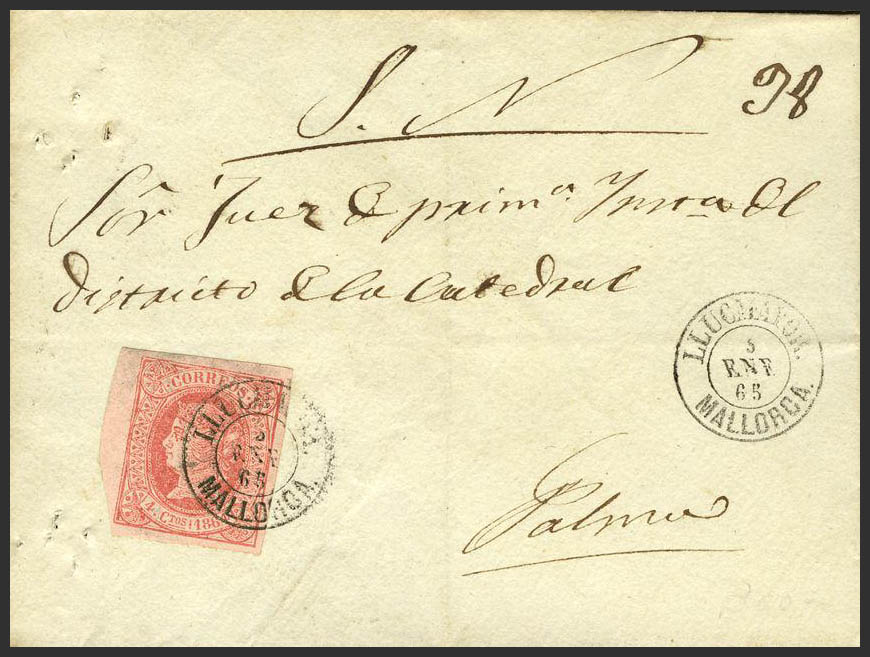 S. N
98
Sór Juez de prim.ª Insca. del
distrito de la Catedral
LLUCMAYOR.
5
ENE
65
MALLORCA.
CORREOS
4 CTOS 186
LLUCMAYOR.
5
ENE
65
MALLORCA.
Palma